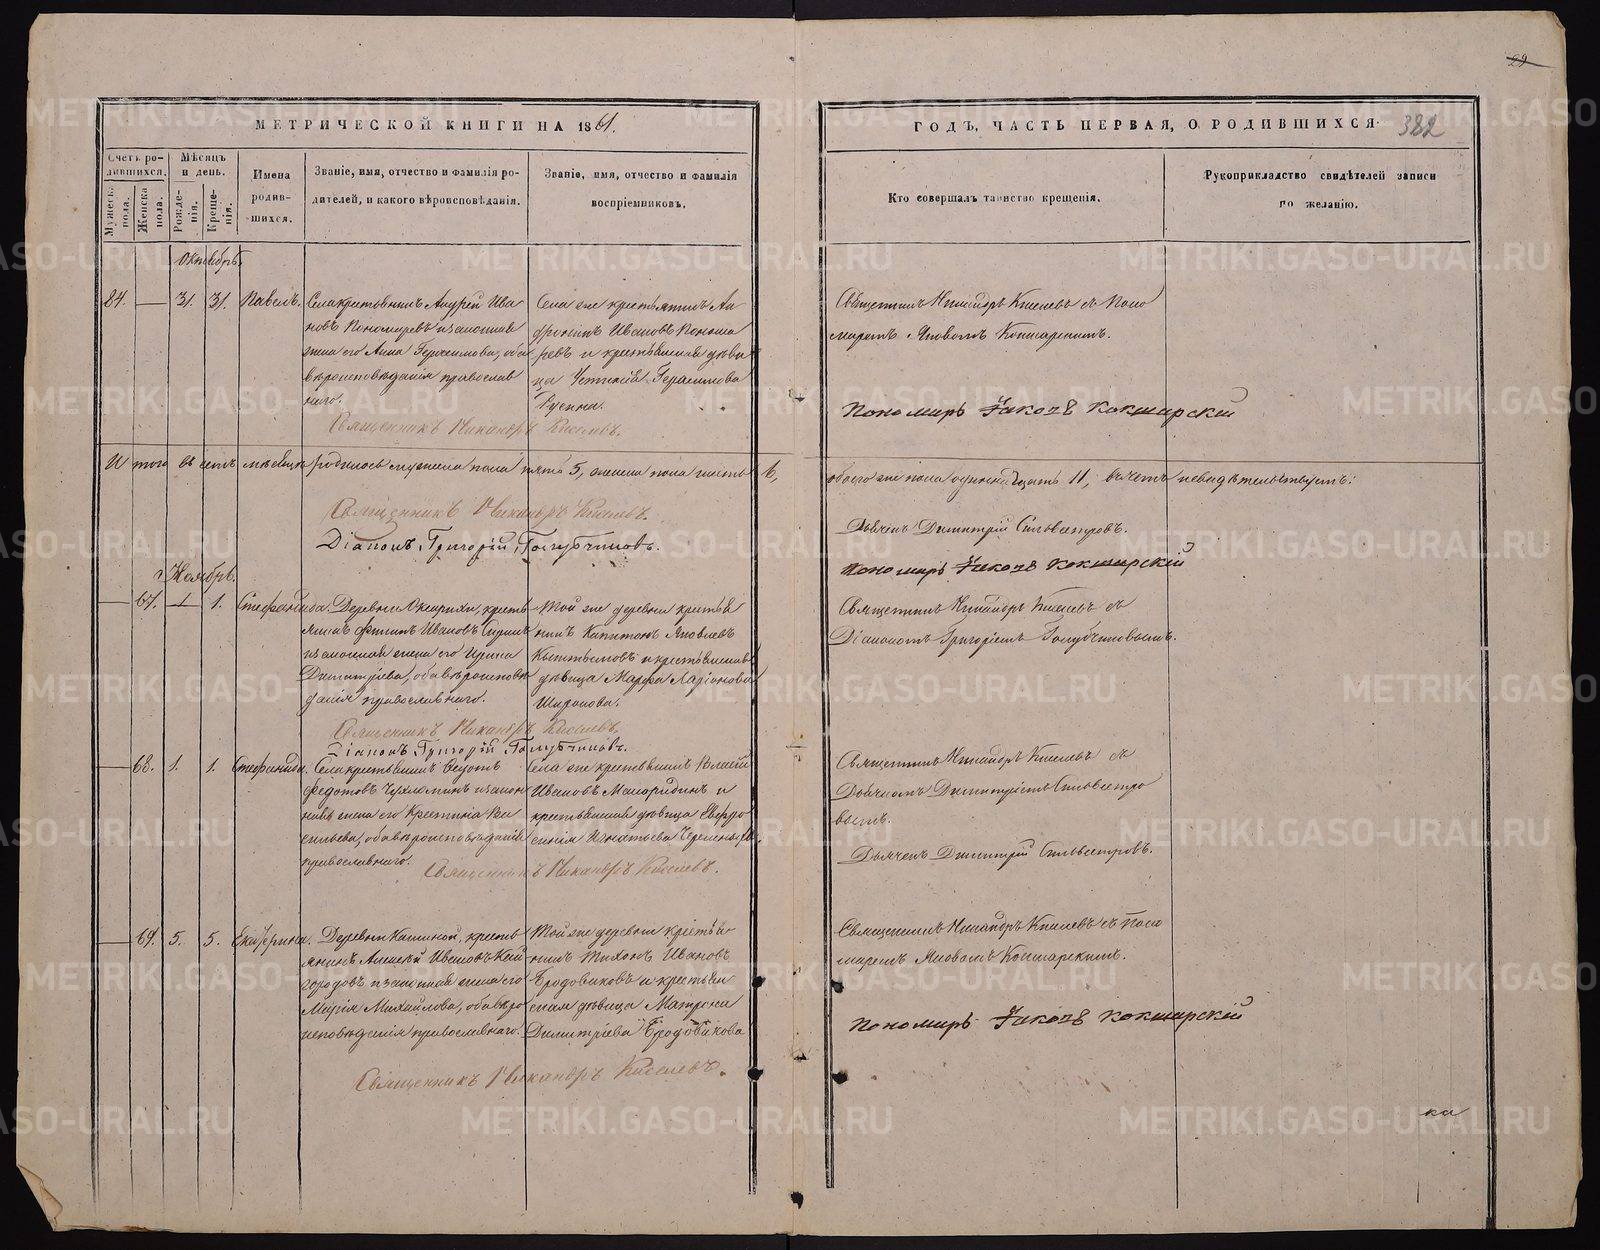 29
МЕТРИЧЕСКОЙ КНИГИ НА 1861.
ГОДЪ, ЧАСТЬ ПЕРВАЯ, О РОДИВШИХСЯ.
382
Счетъ родившихся.
Мужеска пола.
Женска пола.
Мѣсяцъ и день.
Рожденія.
Крещенія.
Имена родившихся.
Званіе, имя, отчество и фамилія родителей, и какого вѣроисповѣданія.
Званіе, имя, отчество и фамилія воспріемниковъ.
Кто совершалъ таинство крещенія.
Рукоприкладство свидѣтелей записи по желанію.
Октябрь
84. — 31. 31. Павелъ.
Села крестьянинъ Андрей Ива
новъ Пономаревъ и законная
жена его Анна Герасимова, оба
вѣроисповѣданія православ
наго.
Села же крестьянинъ
Ивановъ Понома
ревъ и крестьянская дѣви
ца Устинія Герасимова
Священникъ Никандръ Киселевъ съ Поно
маремъ Яковомъ Кокшарскимъ.
Священникъ Никандръ Киселевъ.
Пономарь Іаковъ Кокшарскій
Итого въ семъ мѣсяцѣ родилось мужеска пола пять 5, женска пола шесть 6,
обоего же пола одиннадцать 11, въ чемъ и свидѣтельствуемъ:
Священникъ Никандръ Киселевъ.
Діаконъ Григорій Голубчиковъ.
Дьячекъ Димитрій Сильвестровъ.
Пономарь Іаковъ Кокшарскій
Ноябрь.
— 67. 1 1. Стефанида.
Деревни крестья
янинъ Филипъ Ивановъ
и законная жена его Ирина
Димитріева, оба вѣроисповѣ
данія православнаго.
Той же деревни крестья
нинъ Капитонъ Яковлевъ
и крестьянская
дѣвица Марфа Ларіонова
Широкова.
Священникъ Никандръ Киселевъ съ
Діакономъ Григоріемъ Голубчиковымъ.
Священникъ Никандръ Киселевъ.
Діаконъ Григорій Голубчиковъ.
— 68. 1. 1. Стефанида.
Села крестьянинъ Федотъ
Федотовъ и закон
ная жена его Крестина Ва
сильева, оба вѣроисповѣданія
православнаго.
Села же крестьянинъ
Ивановъ и
крестьянская дѣвица Евфро
синія Игнатьева
Священникъ Никандръ Киселевъ съ
Дьячкомъ Димитріемъ Сильвестро
вымъ.
Священникъ Никандръ Киселевъ.
Дьячекъ Димитрій Сильвестровъ.
— 69. 5. 5. Екатерина.
Деревни крестья
янинъ Алексѣй Ивановъ Кай
городовъ и законная жена его
Марія Михайлова, оба вѣро
исповѣданія православнаго.
Той же деревни крестья
нинъ Тихонъ Ивановъ
Бродовиковъ и крестьян
ская дѣвица Матрона
Димитріева Бродовикова
Священникъ Никандръ Киселевъ съ Поно
маремъ Яковомъ Кокшарскимъ.
Священникъ Никандръ Киселевъ.
Пономарь Іаковъ Кокшарскій
METRIKI.GASO-URAL.RU